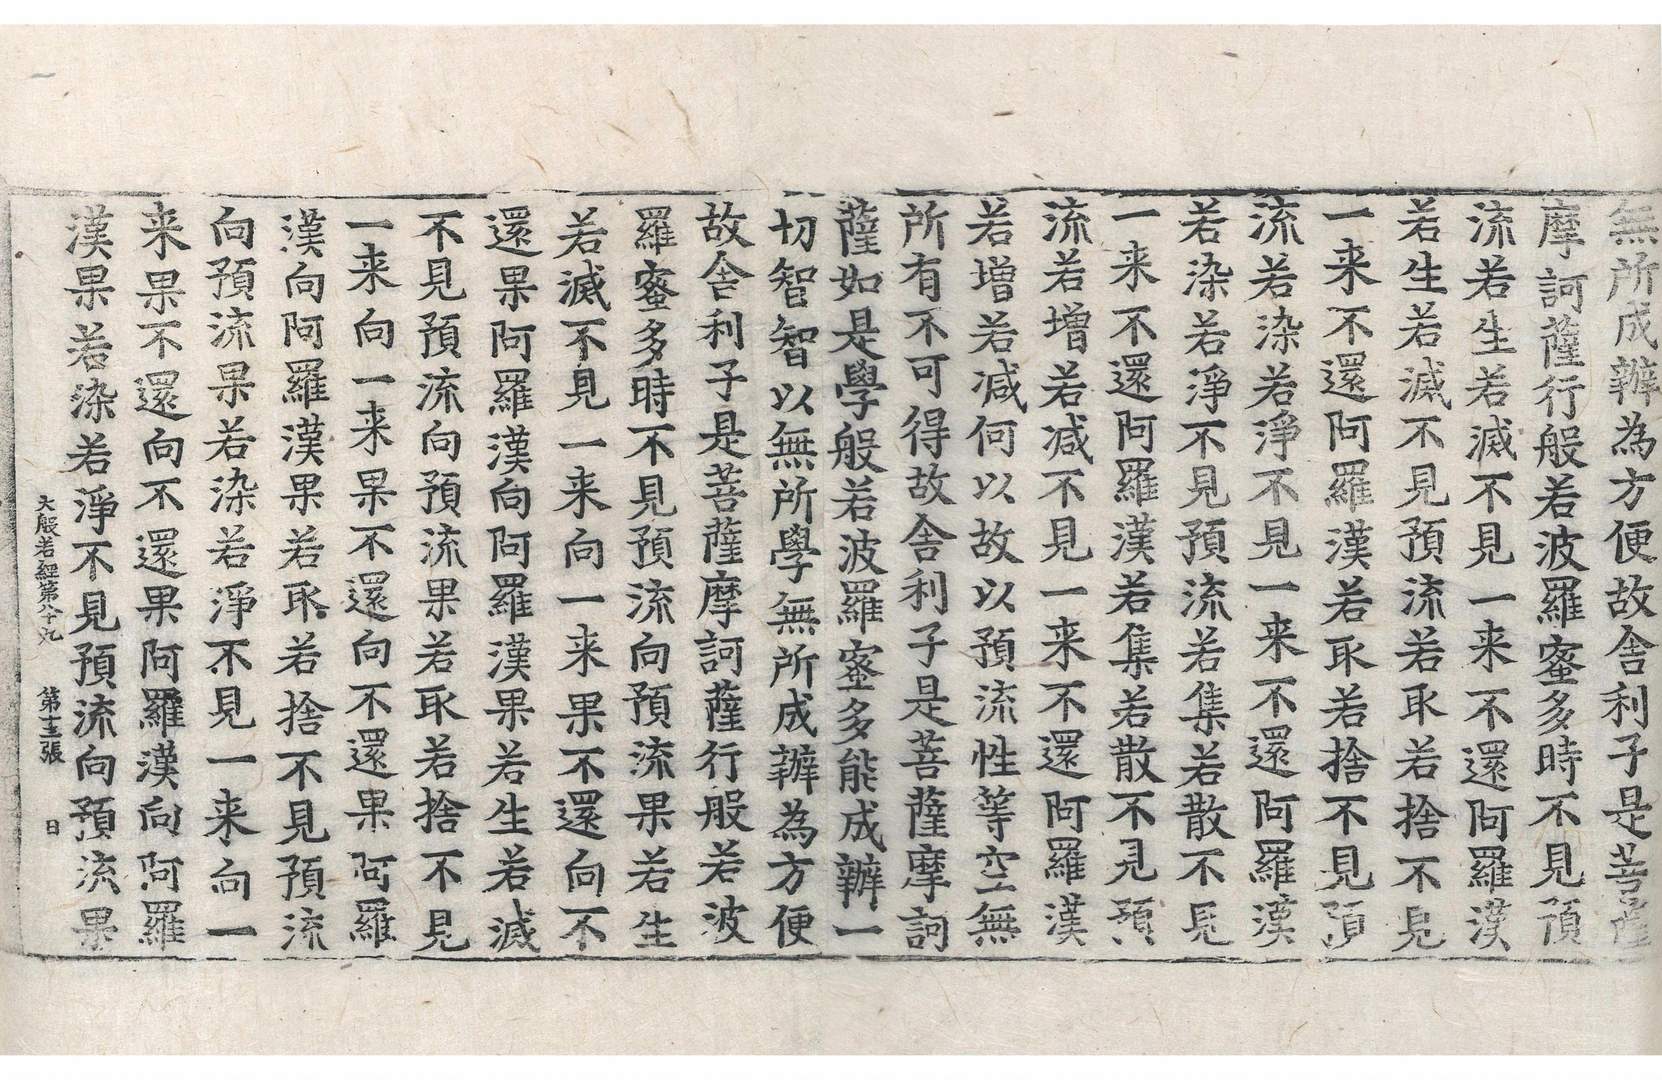 無所成辦為方便故舍利子是菩薩
摩訶薩行般若波羅蜜多時不見預
流若生若滅不見一来不還阿羅漢
若生若滅不見預流若取若捨不見
一来不還阿羅漢若取若捨不見預
流若染若淨不見一来不還阿羅漢
若染若淨不見預流若集若散不見
一来不還阿羅漢若集若散不見預
流若增若減不見一来不還阿羅漢
若增若減何以故以預流性等空無
所有不可得故舍利子是菩薩摩訶
薩如是學般若波羅蜜多能成辦一
切智智以無所學無所成辦為方便
故舍利子是菩薩摩訶薩行般若波
羅蜜多時不見預流向預流果若生
若滅不見一来向一来果不還向不
還果阿羅漢向阿羅漢果若生若滅
不見預流向預流果若取若捨不見
一来向一来果不還向不還果阿羅
漢向阿羅漢果若取若捨不見預流
向預流果若染若淨不見一来向一
来果不還向不還果阿羅漢向阿羅
漢果若染若淨不見預流向預流果
大般若經第八十九 第十三張 日